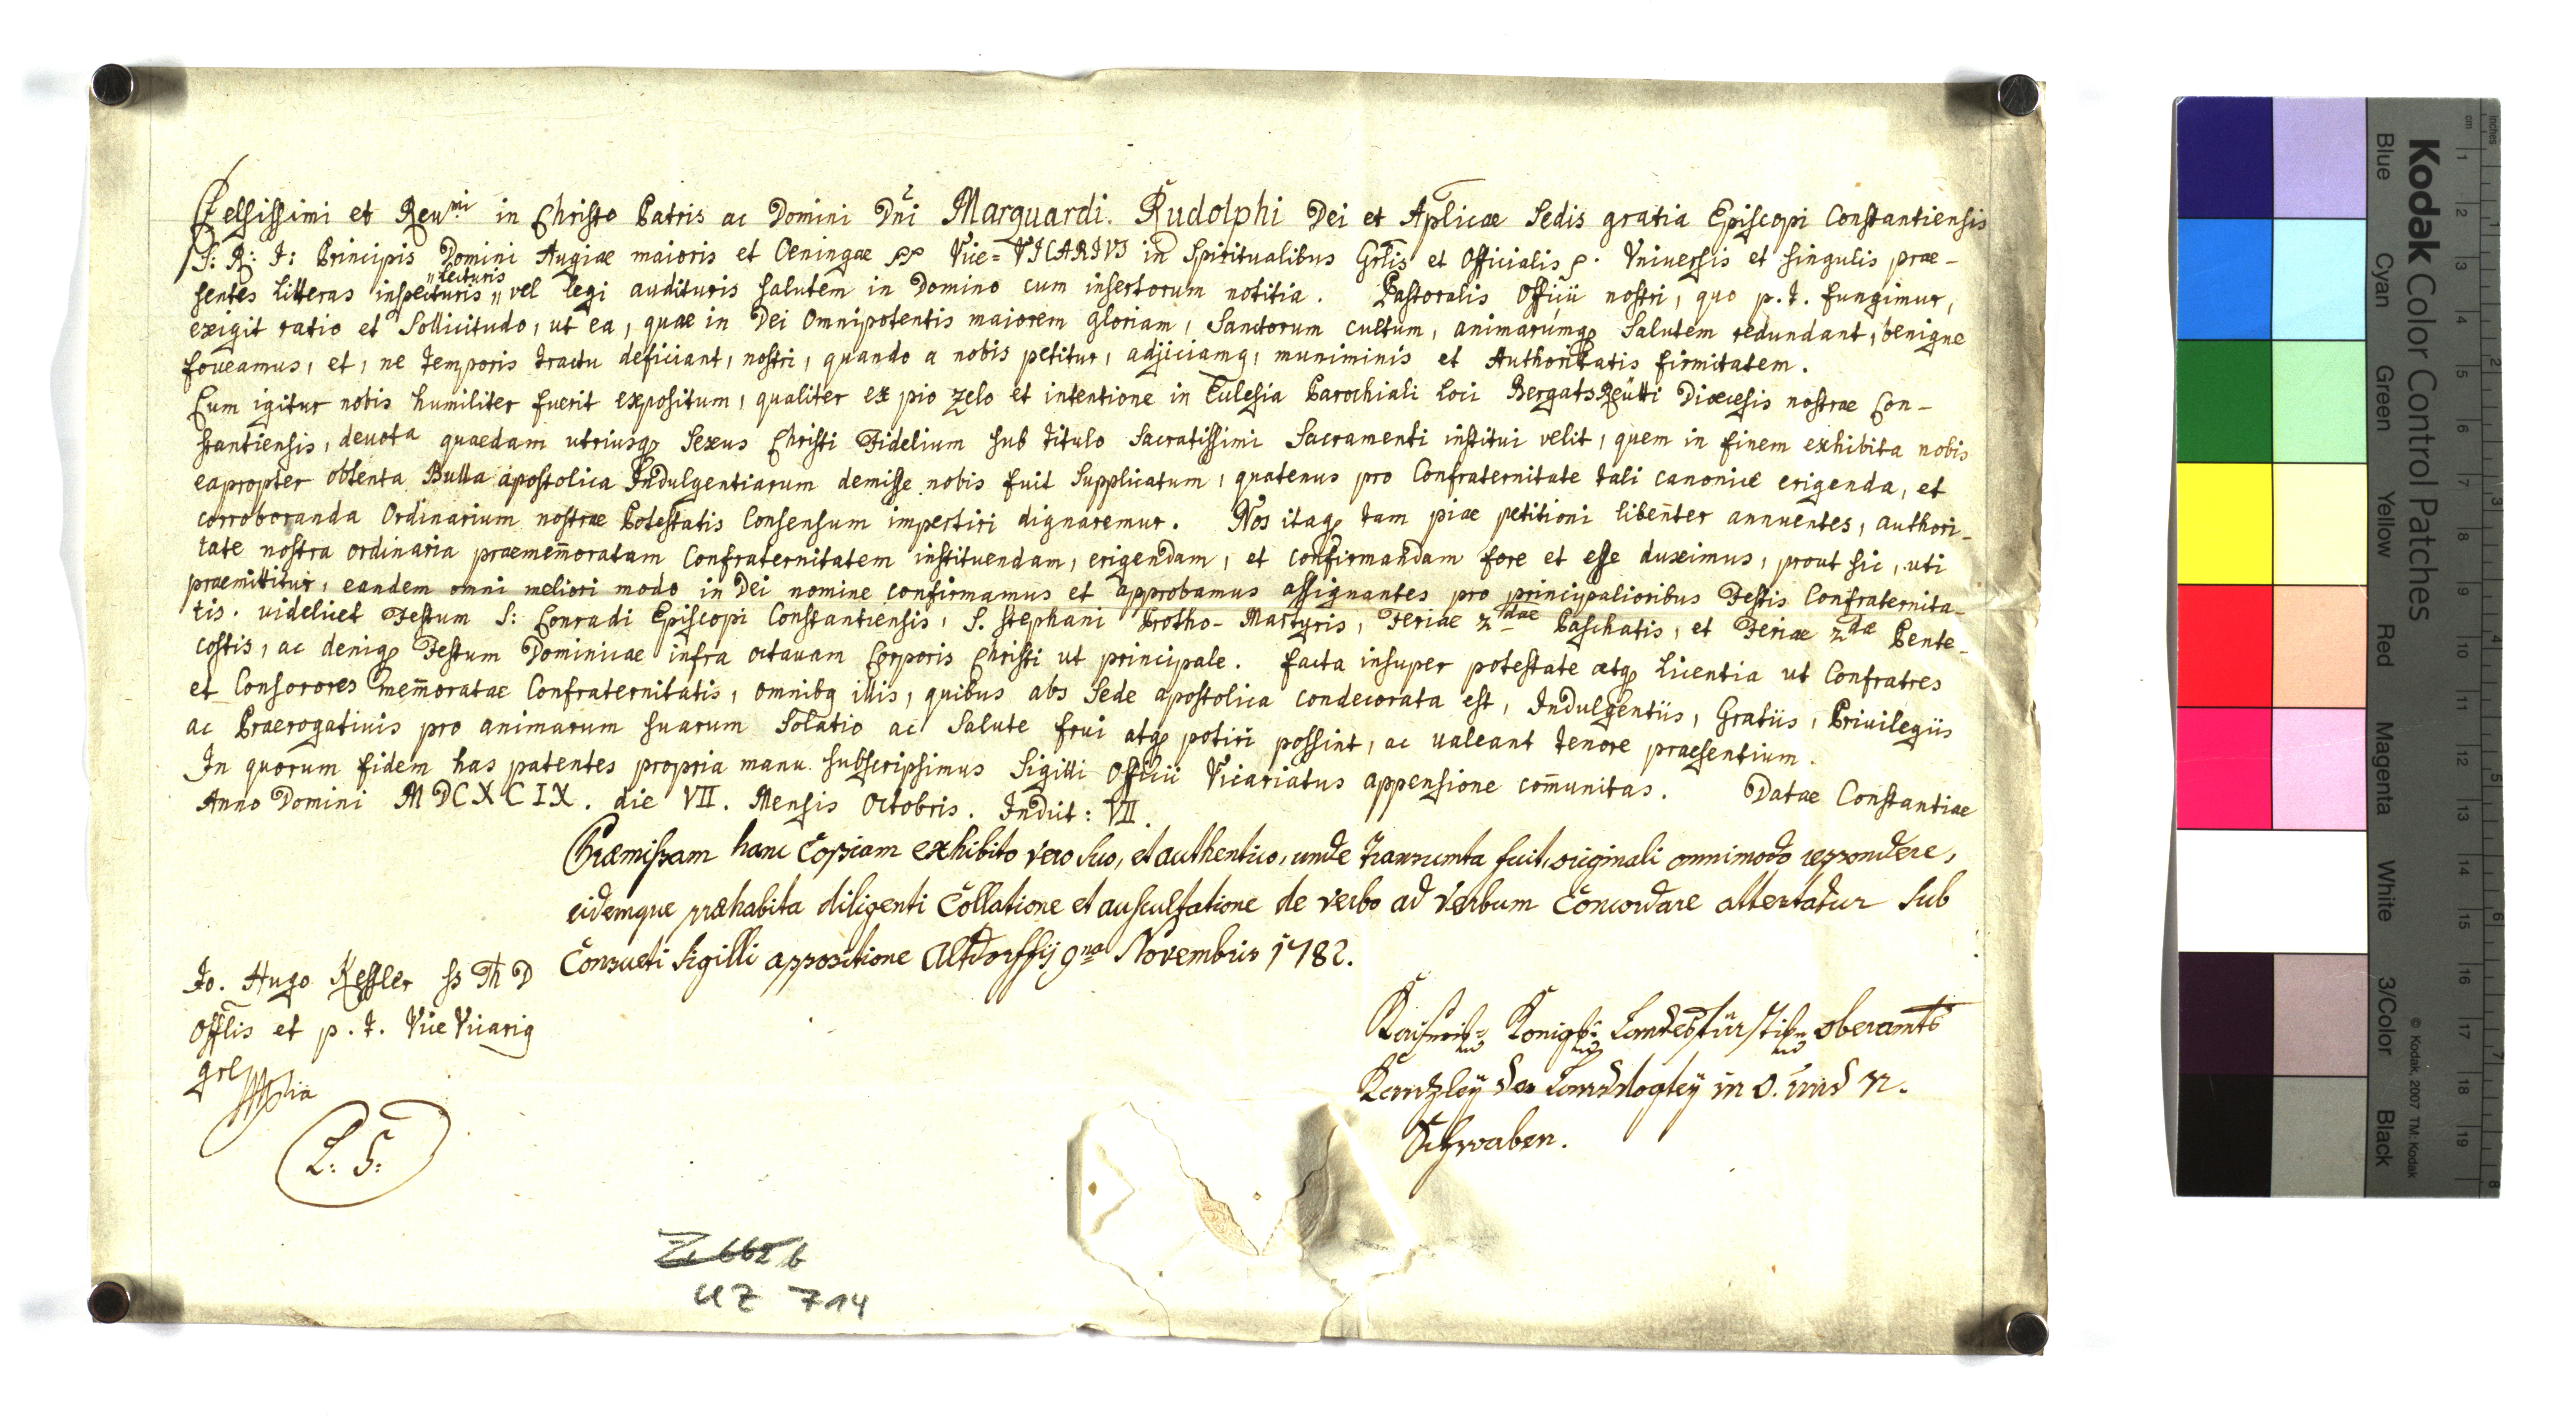 Celsissimi et Reu.mi in Christo Patris ac Domini Dni Marquardi Rudolphi Dei et Aplicae Sedis gratia Episcopi Constantiensis
S: R: I: Principis Domini Augiae maioris et Oeningae Vice=VICARIVS in Spiritualibus Grlis et Officialis. Vniuersis et singulis prae-
"lecturis
sentes litteras inspecturis" vel legi audituris salutem in Domino cum insertorum notitia. Pastoralis Officii nostri, quo p.t. fungimur,
exigit ratio et Sollicitudo, ut ea, quae in Dei Omnipotentis maiorem gloriam, Sanctorum cultum, animarumq Salutem redundant, benigne
foveamus, et, ne temporis tractu deficiant, nostri, quando a nobis petitur, adjiciamq, muniminis et Authoritatis firmitatem.
Cum igitur nobis humiliter fuerit expositum, qualiter ex pio zelo et intentione in Eulesia Parochiali loci BergatsReütti Dioecesis nostrae Con-
stantiensis, deuota quaedam utriusq Sexus Christi Fidelium sub titulo Sacratissimi Sacramenti institui velit, quem in finem exhibita nobis
eapropter obtenta Bulla apostolica Indulgentiarum demisse nobis fuit Supplicatum, quatenus pro Confraternitate tali canonice erigenda, et
corroboranda Ordinarium nostrae Potestatis Consensum impertiri dignaremur. Nos itaq tam piae petitioni libenter annuentes, authori-
tate nostra ordinaria praememoratam Confraternitatem instituendam, erigendam, et confirmandam fore et esse duximus, prout sic, uti
praemittitur, eandem omni meliori modo in Dei nomine confirmamus et approbamus assignantes pro principalioribus Festis Confraternita-
tis. videlicet Festum S: Conradi Episcopi Constantiensis, S. Stephani Protho-Martyris, Feriae 2dae Paschatis, et Feriae 2dae Pente-
costis, ac deniq Festum Dominicae infra octauam Corporis Christi ut principale. facta insuper potestate atq licentia ut Confratres
et Consorores memoratae Confraternitatis, omnibq illis, quibus abs Sede apostolica condecorata est, Indulgentiis, Gratiis, Priuilegiis
ac Praerogatiuis pro animarum suarum Solatio ac Salute frui atq potiri possint, ac ualeant tenore praesentium.
In quorum fidem has patentes propria manu subscripsimus Sigilli Officii Vicariatus appensione comunitas. Datae Constantiae
Anno Domini MDCXCIX. die VII. Mensis Octobris. Indict: VII.
Praemissam hanc Copiam exhibito vero suo, et authentico, unde transumta fuit, originali omnimodo respondere,
eidemque praehabita diligenti Collatione et auscultatione de verbo ad verbum Concordare attestatur sub
Consueti sigilli appositione Altdorffij 9na Novembris 1782.
Jo. Hugo Kessler ss Th D
Offlis et p.t. Vice Vicariq
grl
L: S:
Kaiserl= Königl= Landesfürstl= oberamts
Kanzley der Landvogtey in O. und N.
Schwaben.
Z. 662 b
UZ 714
Kodak Color Control Patches
Blue Cyan Green Yellow Red Magenta White 3/Color Black
© Kodak, 2007 TM: Kodak
inches 1 2 3 4 5 6 7 8
cm 1 2 3 4 5 6 7 8 9 10 11 12 13 14 15 16 17 18 19